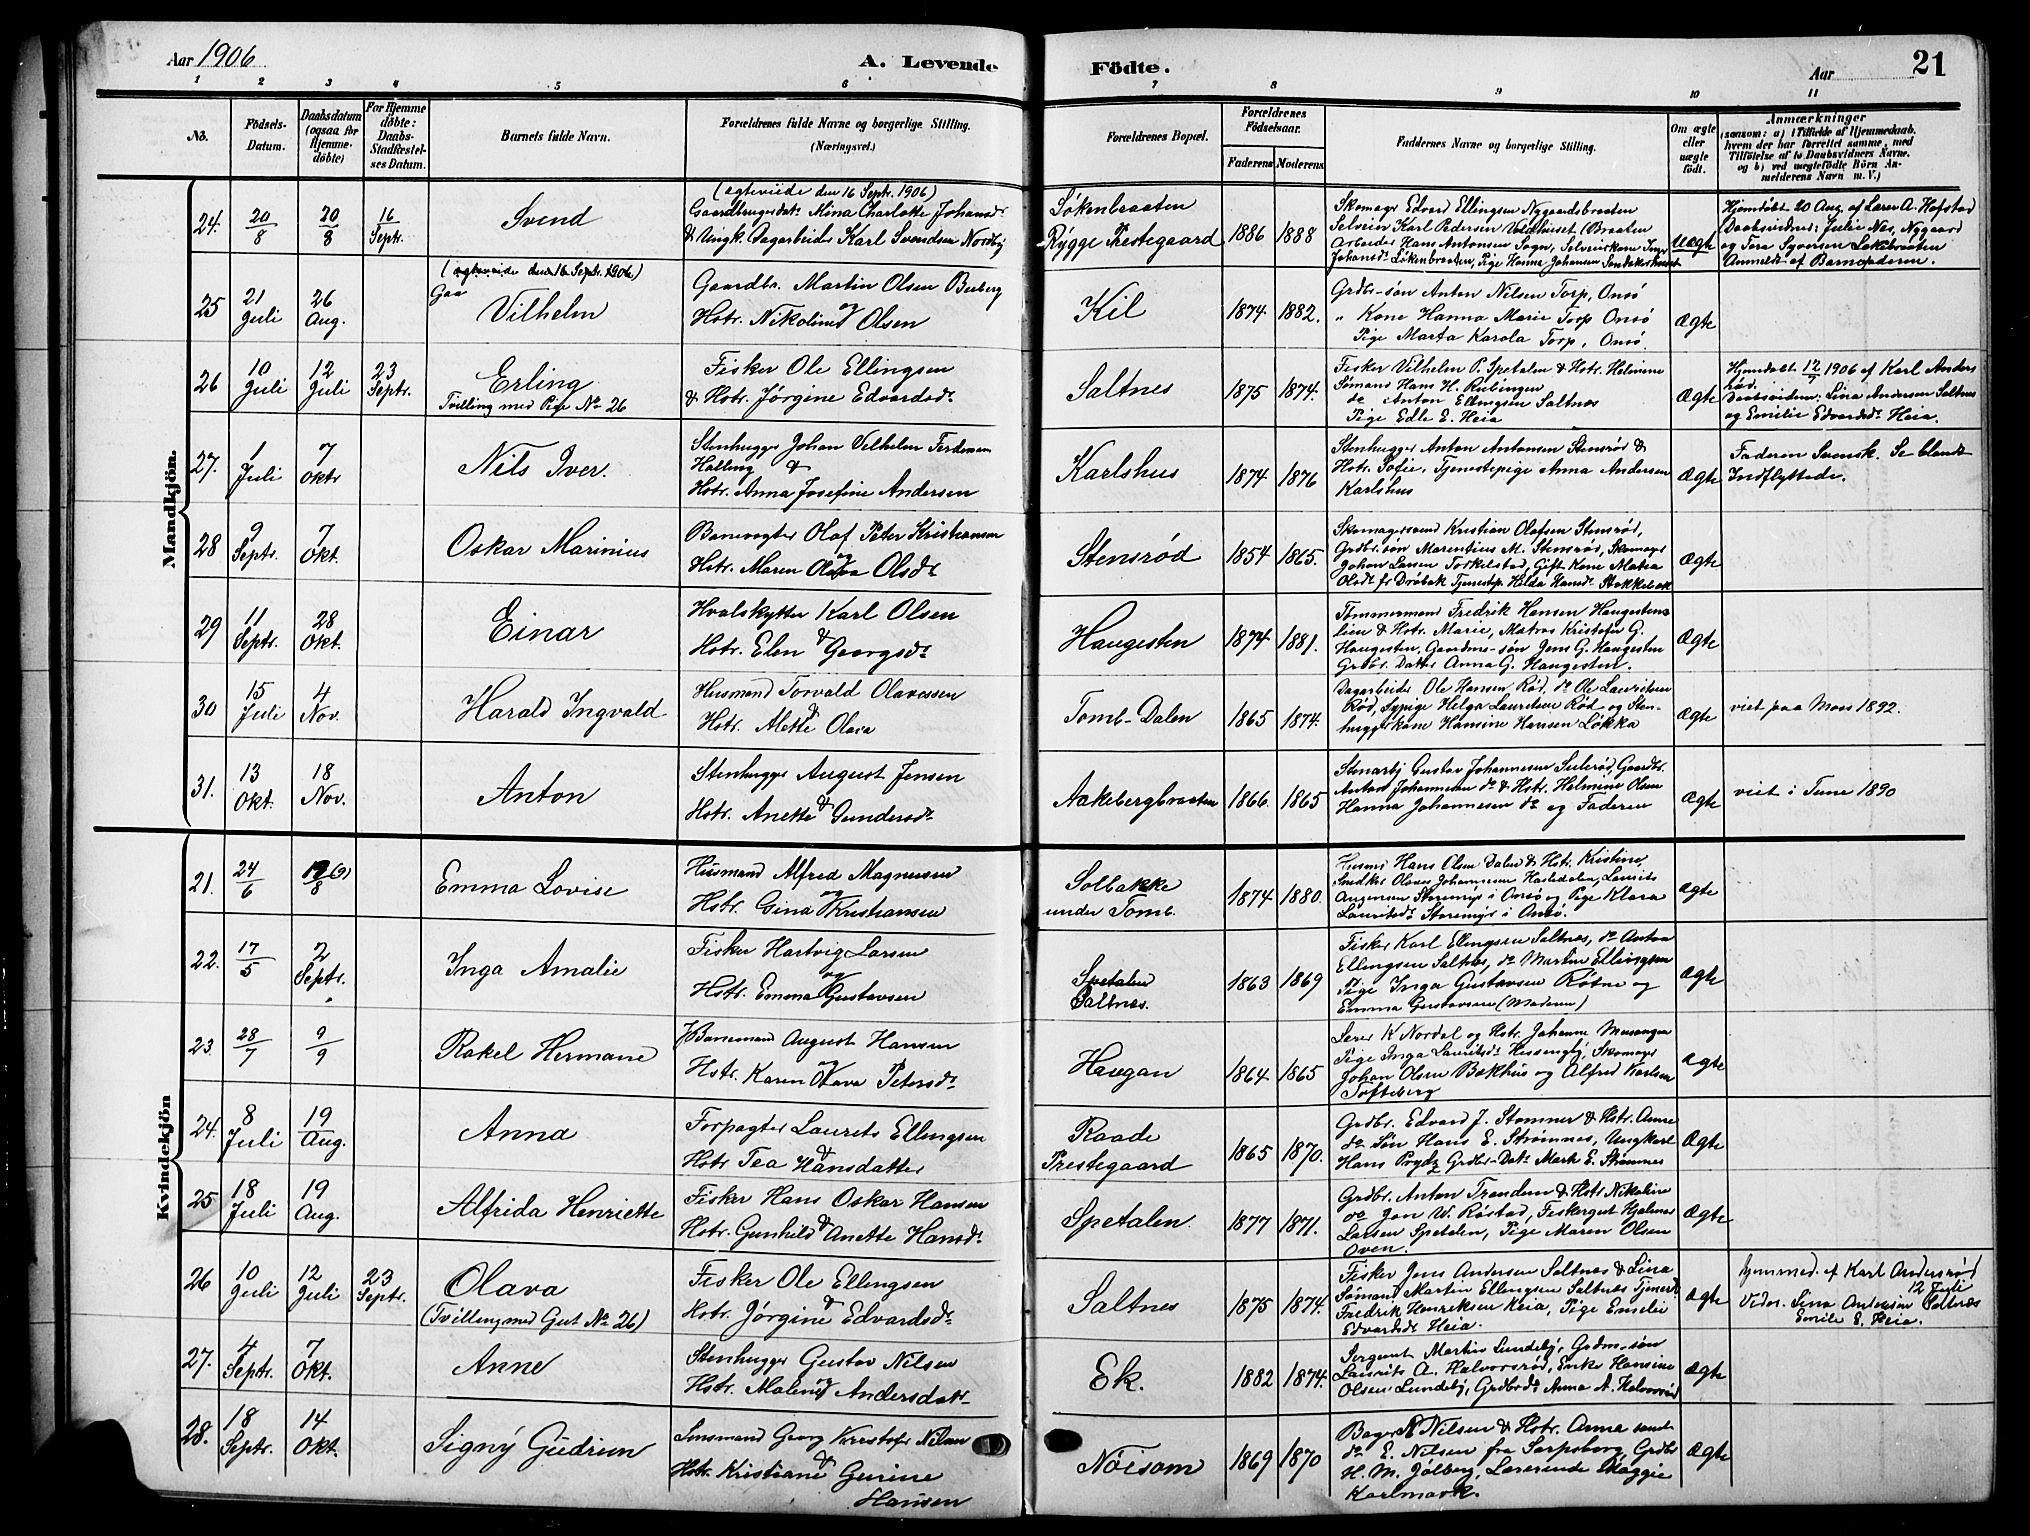 Aar 1906
A. Levende Födte.
Aar 21
1 2 3 4 5 6 7 8 9 10 11
No.
Födsels-Datum.
Daabsdatum (ogsaa for Hjemmedøbte)
For Hjemmedøbte: Daabs-Stadfæstelses Datum.
Barnets fulde Navn.
Forældrenes fulde Navne og borgerlige Stilling.
(Næringsvei.)
Forældrenes Bopæl.
Forældrenes Fødselsaar.
Faderens Moderens
Faddernes Navne og borgerlige Stilling.
Om ægte eller uægte født.
Anmærkninger
(saasom: a) i Tilfælde af Hjemmedaab, hvem der har forrettet samme, med Tilføielse af to Daabsvidners Navne, og b) ved uægtefødte Börn Anmelderens Navn m. V.)
Mandkjön.
24. 20/8 20/8 16 Septr. Svend
(ægteviede den 16 Septr. 1906)
Gaardbrugerdatr. Mina Charlotte Johansdr
& Ungk. Dagarbeider Karl Svendsen Nordby
Løkenbraaten
Rygge Prestegaard 1886 1888
Skomager Edvard Ellingsen Nygaardsbraaten
Selveier Karl Pedersen
Arbeider Hans Antonsen Sogn, Selveierkone
Johansdr Løkenbraaten, Pige Hanna Johansen
Uægte
Hjemdøbt 20 Aug. af Lærer A. Hofstad
Daabsvidner: Julie Nes, Nygaard
og
Anmeldt af Barnefaderen.
(ægteviede den 16 Septr. 1906)
Gaa
25 21 Juli 26 Aug. Vilhelm
Gaardbr. Martin Olsen Berberg
og
Hstr. Nikoline Olsen
Kil 1874 1882.
Grdbr-søn Anton Nilsen Torp, Onsö
" Kone Hanna Marie Torp Onsö
Pige Marta Karola Torp, Onsö.
Ægte
26 10 Juli 12 Juli 23 Septr. Erling
Tvilling med Pige No 26
Fisker Ole Ellingsen
& Hstr. Jørgine Edvardsdr
Saltnes 1875 1874.
Fisker Vilhelm P. Spetalen & Hstr. Helmine
Sømand Hans H. Rublingen
do Anton Ellingsen Saltnes
Pige Edle E. Heia
Ægte
Hjemdøbt 12/7 1906 af Karl Anders
rød.
Daabsvidner: Lina Andersen Saltnes
og Emilie Edvardsdr Heia.
27. 1 Juli 7 Oktr Nils Iver.
Stenhugger Johan Vilhelm Ferdinan
Halling &
Hstr. Anna Josefine Andersen
Karlshus 1874 1876
Stenhugger Anton Antonsen Stensrød &
Hstr. Sofie, Tjenestepige Anna Andersen
Karlshus
Ægte
Faderen Svensk. Se blandt
Indflyttede.
28 9 Septr. 7 Okt. Oskar Marinius
Banevogter Olaf Peter Kristiansen
og
Hstr. Maren Olava Olsdr
Stensrød 1854 1865.
Skomagersvend Kristian Olafsen Stensrød,
Grdbr. søn Marentius M. Stensrød, Skomager
Johan Larsen Torkelstad, Gift Kone Matea
Olsdr fr Drøbak Tjenestep. Hilda Hansdr Stokkebæk
Ægte
29 11 Septr. 28 Okt. Einar
Hvalskytter Karl Olsen
&
Hstr. Elen Georgsdr
Haugesten 1874 1881.
Tømmermand Fredrik Hansen Haugesten
lien & Hstr. Marie, Matros Kristofer G.
Haugesten, Gaardm-søn Jens G. Haugesten
Grdbr. Datter Anna G. Haugesten.
Ægte
30 15 Juli 4 Nov. Harald Ingvald
Husmand Torvald Olavessen
&
Hstr. Alette Olava
Tomb-Dalen 1865 1874.
Dagarbeider Ole Hansen Rød, do Ole Lauritsen
Rød, Sypige Helga Lauritsen Rød og Sten-
huggerkone Hansine Hansen Løkka
Ægte
viet paa Moss 1892.
31. 13 Okt. 18 Nov. Anton
Stenhugger August Jensen
&
Hstr. Anette Gundersdr
Aakebergbraaten 1866. 1865
Stenarbj Gustav Johannesen Sulerød, Gaardbr.
Antard Johannesen do & Hstr. Helmine Olsen
Hanna Johannesen do og Faderen
Ægte
viet i Tune 1890
Kvindekjön
21. 24/6 /8 Emma Lovise
Husmand Alfred Magnusen
og
Hstr. Gina Kristiansen
Solbakke
under Tomb. 1874 1880.
Husmd Hans Olsen Dalen & Hstr. Kristine,
Snedker Olaves Johannesen Hasledalen, Laurits
Augensen Storemyr i Onsö og Pige Klara
Lauritsdr Storemyr i Onsö.
Ægte
22. 17/5 2 Septr. Inga Amalie
Fisker Hartvig Larsen
og
Hstr. Emma Gustavsen
Spetalen
Saltnes. 1863 1869
Fisker Karl Ellingsen Saltnes, do Anton
Ellingsen Saltnes, do Martin Ellingsen
Pige Inga Gustavsen Røtne og
Emma Gustavsen (Moderen)
Ægte
23. 28/7 9/9 Rakel Hermane
Banemand August Hansen
og
Hstr. Karen Olava Petersdr
Haugan 1864 1865
Lærer K Nordal og Hstr. Johanne
Pige Inga Lauritsdr Hessengby, Skomager
Johan Olsen Bakhus og Alfred Karlsen
Tofteberg
Ægte
24. 8 Juli 19 Aug. Anna
Forpagter Laurits Ellingsen
&
Hstr Tea Hansdatter
Raade
Prestegaard 1865 1870.
Grdbr. Edvard J. Strømnes & Hstr. Anne
do Søn Hans E. Strømnes, Ungkarl
Hans Prydz Grdbr-Datr Mark E. Strømnes
Ægte
25 18 Juli 19 Aug. Alfrida Henriette
Fisker Hans Oskar Hansen
&
Hstr. Gunhild Anette Hansdr
Spetalen. 1877 1871.
Grdbr. Anton Trondsen & Hstr Nikoline
do Jon W. Røstad, Fiskergut Hjalmar
Larsen Spetalen, Pige Maren Olsen
Oven.
Ægte
26 10 Juli 12 Juli 23 Septr. Olava
(Tvilling med Gut No 26)
Fisker Ole Ellingsen
&
Hstr. Jørgine Edvardsdr
Saltnes 1875 1874.
Fisker Jens Andersen Saltnes & Lina
Sømand Martin Ellingsen Saltnes Tjener
Fredrik Henriksen Heia, Pige Emelie
Edvardsdr Heia.
Ægte
hjemmed. af Karl Andersrød
12 Juli
Vidn. Lina Andersen Saltnes
Emilie E. Heia.
27. 4 Septr. 7 Okt. Anne
Stenhugger Gustav Nilsen
og
Hstr. Malene Andersdatr
Ek. 1882 1874.
Sergeant Martin Lundeby, Grdm.-søn
Laurits A. Halvorsrød, Enke Hansine
Olsen Lundeby, Grdbrdr Anna A. Halvorsrød
Ægte
28. 18 Septr. 14 Okt. Signy Gudrun
Georg Kristofer Nilsen
&
Hstr. Kristiane Gurine
Hansen
Noisom 1869 1870
Bager Nilsen & Hstr. Anna samt
do E. Nilsen fra Sarpsborg, Grdbr
H. M. Jølberg, Lærerinde Maggie
Karlmark.
Ægte